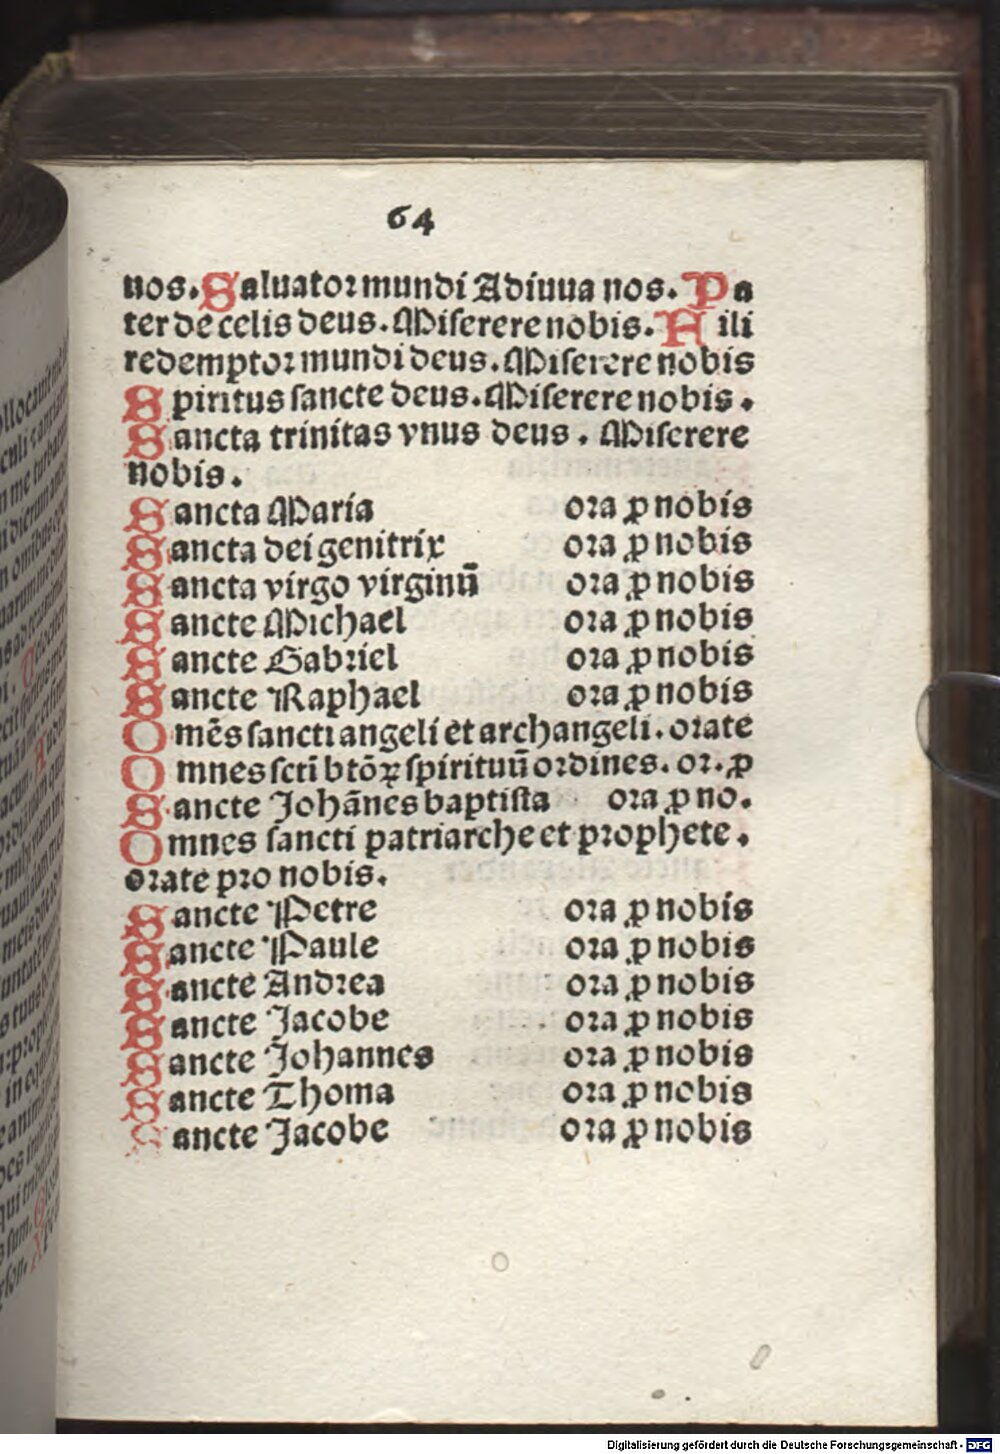 64
nos. Saluator mundi Adiuua nos. Pa
ter de celis deus. Miserere nobis. Fili
redemptor mundi deus. Miserere nobis
Spiritus sancte deus. Miserere nobis.
Sancta trinitas vnus deus. Miserere
nobis.
Sancta Maria ora ꝓ nobis
Sancta dei genitrix ora ꝓ nobis
Sancta virgo virginū ora ꝓ nobis
Sancte Michael ora ꝓ nobis
Sancte Gabriel ora ꝓ nobis
Sancte Raphael ora ꝓ nobis
Omēs sancti angeli et archangeli. orate
Omnes scti btōꝝ spirituū ordines. or. ꝓ
Sancte Johānes baptista ora ꝓ no.
Omnes sancti patriarche et prophete.
orate pro nobis.
Sancte Petre ora ꝓ nobis
Sancte Paule ora ꝓ nobis
Sancte Andrea ora ꝓ nobis
Sancte Jacobe ora ꝓ nobis
Sancte Johannes ora ꝓ nobis
Sancte Thoma ora ꝓ nobis
Sancte Jacobe ora ꝓ nobis
Digitalisierung gefördert durch die Deutsche Forschungsgemeinschaft - DFG